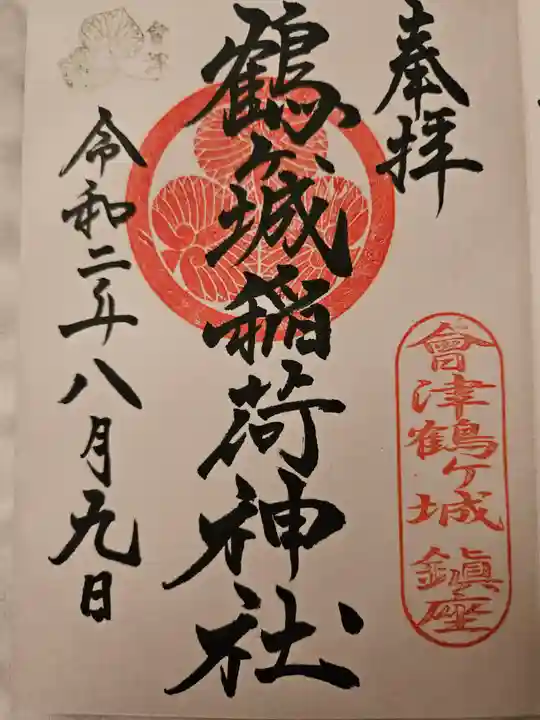 奉拝
會津鶴ヶ城 鎮座
鶴ヶ城稲荷神社
令和二年八月九日
會津